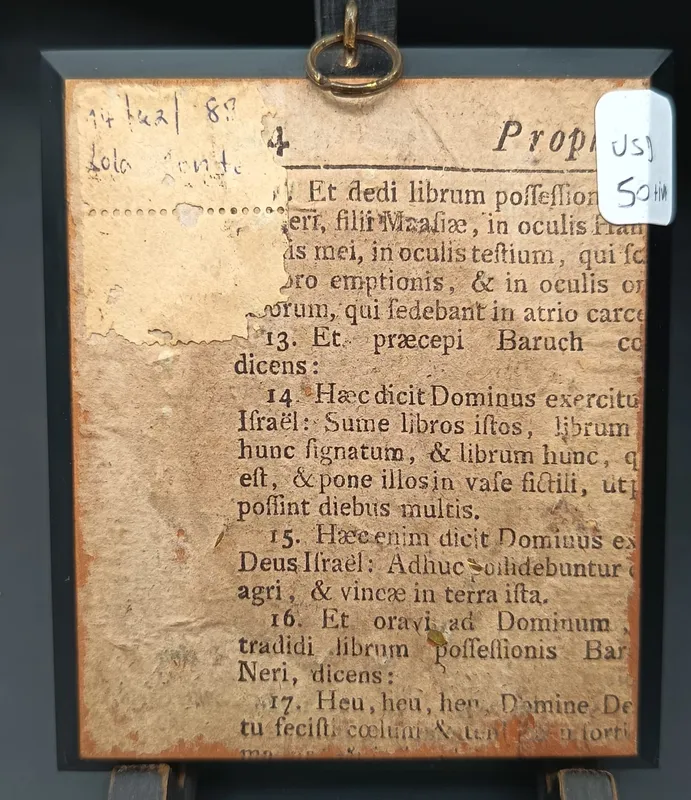 14/42/8
Lola
USD
50
4 Proph
Et dedi librum poſſeſſion
eri, filii Maaſiæ, in oculis Han
is mei, in oculis teſtium, qui ſc
pro emptionis, & in oculis
orum, qui ſedebant in atrio carce
13. Et præcepi Baruch co
dicens:
14. Hæc dicit Dominus exercitu
Iſraël: Sume libros iſtos, librum
hunc ſignatum, & librum hunc, q
eſt, & pone illos in vaſe fictili, ut p
poſſint diebus multis.
15. Hæc enim dicit Dominus ex
Deus Iſraël: Adhuc poſſidebuntur
agri, & vineæ in terra iſta.
16. Et oravi ad Dominum,
tradidi librum poſſeſſionis Bar
Neri, dicens:
17. Heu, heu, heu, Domine De
tu feciſti cœlum & forti